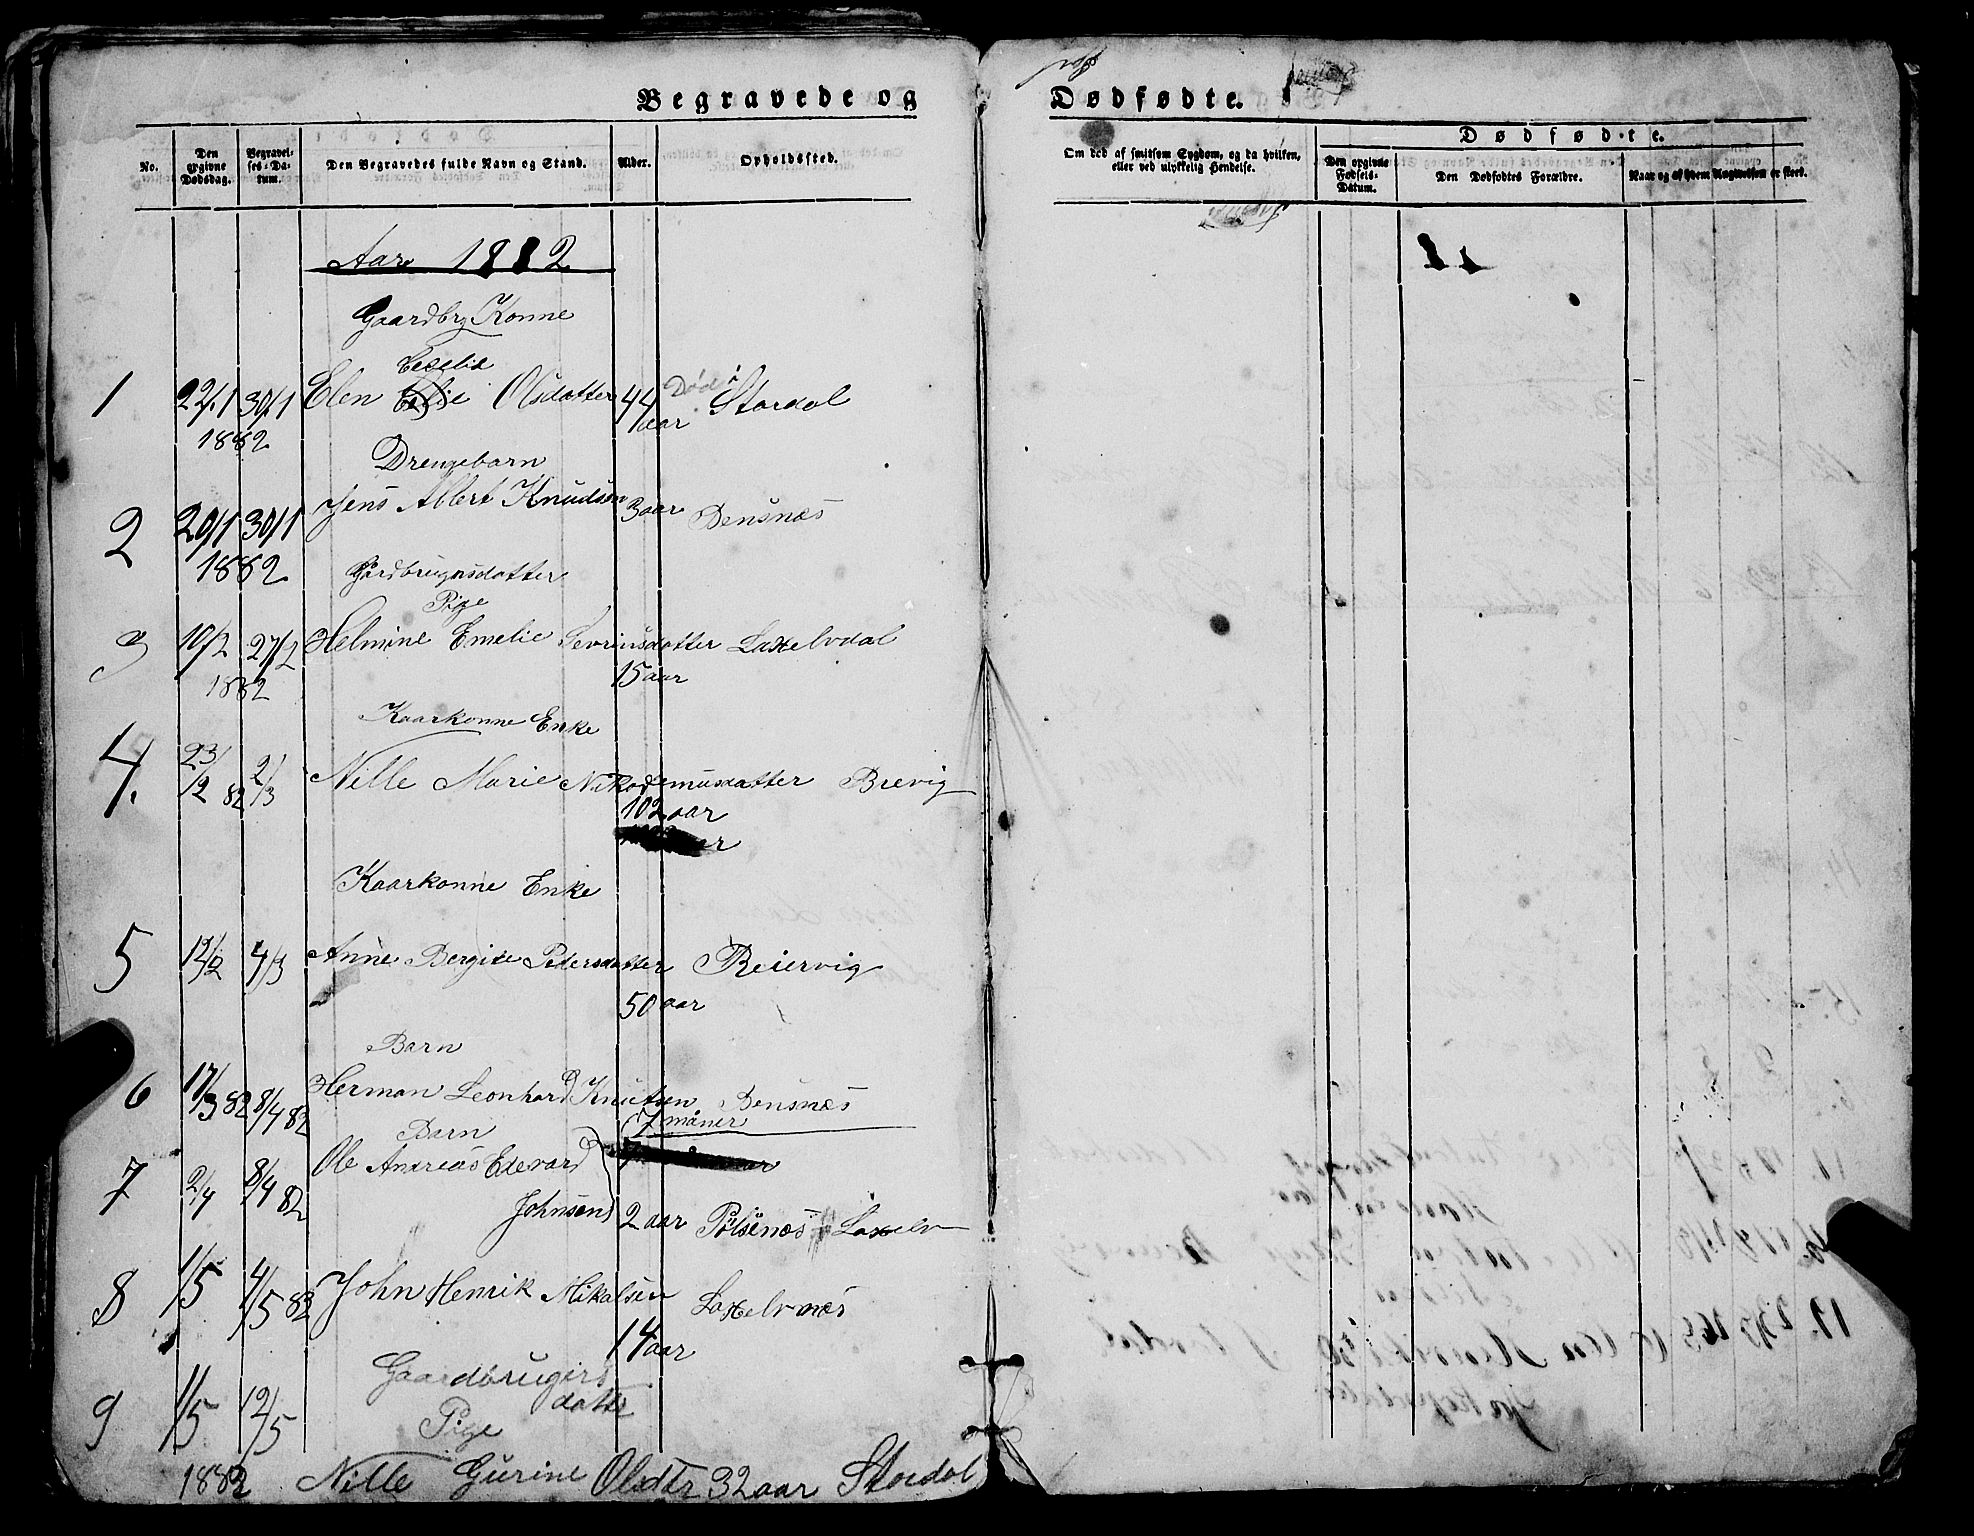 Begravede og Dødfødte.
No.
Den opgivne Dødsdag.
Begravelses-Datum.
Den Begravedes fulde Navn og Stand.
Alder.
Opholdssted.
Om død af smitsom Sygdom, og da hvilken, eller ved ulykkelig Hendelse.
Dødfødte.
Den opgivne Fødsels-Datum.
Den Dødfødtes Forældre.
Naar og af hvem Angivelsen er skeed.
Aar 1882
Gaardbrg Konne
Ceselie
1 22/1 30/1 Elen Olsdatter 44 aar Død i Stordal
1882
Drengebarn
2 20/1 30/1 Jens Albert Knudsen 3 aar Bensnæs
1882
Gårdbrugersdatter
Pige
3 10/2 27/2 Helmine Emelie Sevrinsdatter Laxelvdal
1882 15 aar
Kaarkonne Enke
4. 23/12 82 2/3 Nille Marie Nikodemusdatter Brevig
102 aar
Kaarkonne Enke
5 12/2 4/3 Anne Bergite Pedersdatter Reiervig
50 aar
Barn
6 17/3 82 8/4 82 Herman Leonhard Knutsen Bensnæs
7 måner
Barn
7 2/4 8/4 82 Ole Andreas Edevard
Johnsen 2 aar Pølsenæs Laxelv
8 1/5 4/5 82 John Henrik Mikalsen Laxelvnæs
14 aar
Gaardbrugers
datter
9 1/5 12/5 Pige
1882 Nille Gurine Olsdtr 32 aar Stordal